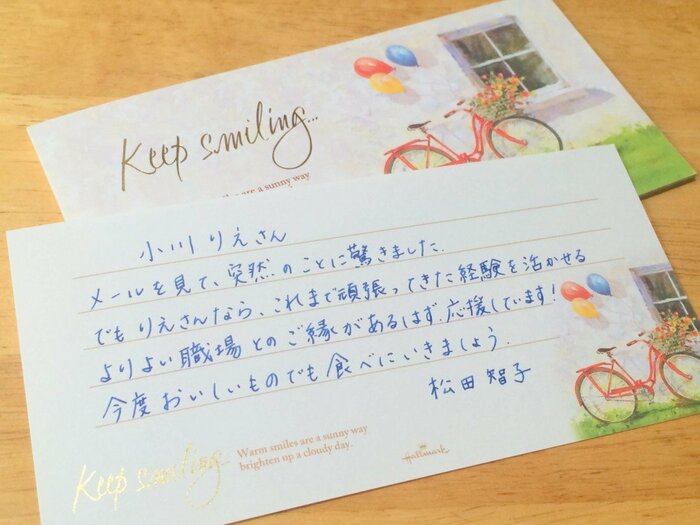 Keep smiling...
are a sunny way
小川りえさん
メールを見て、突然のことに驚きました.
でもりえさんなら、これまで頑張ってきた経験を活かせる
よりよい職場とのご縁があるはず.応援しています!
今度おいしいものでも食べにいきましょう.
松田智子
Keep smiling
Warm smiles are a sunny way
brighten up a cloudy day.
Hallmark